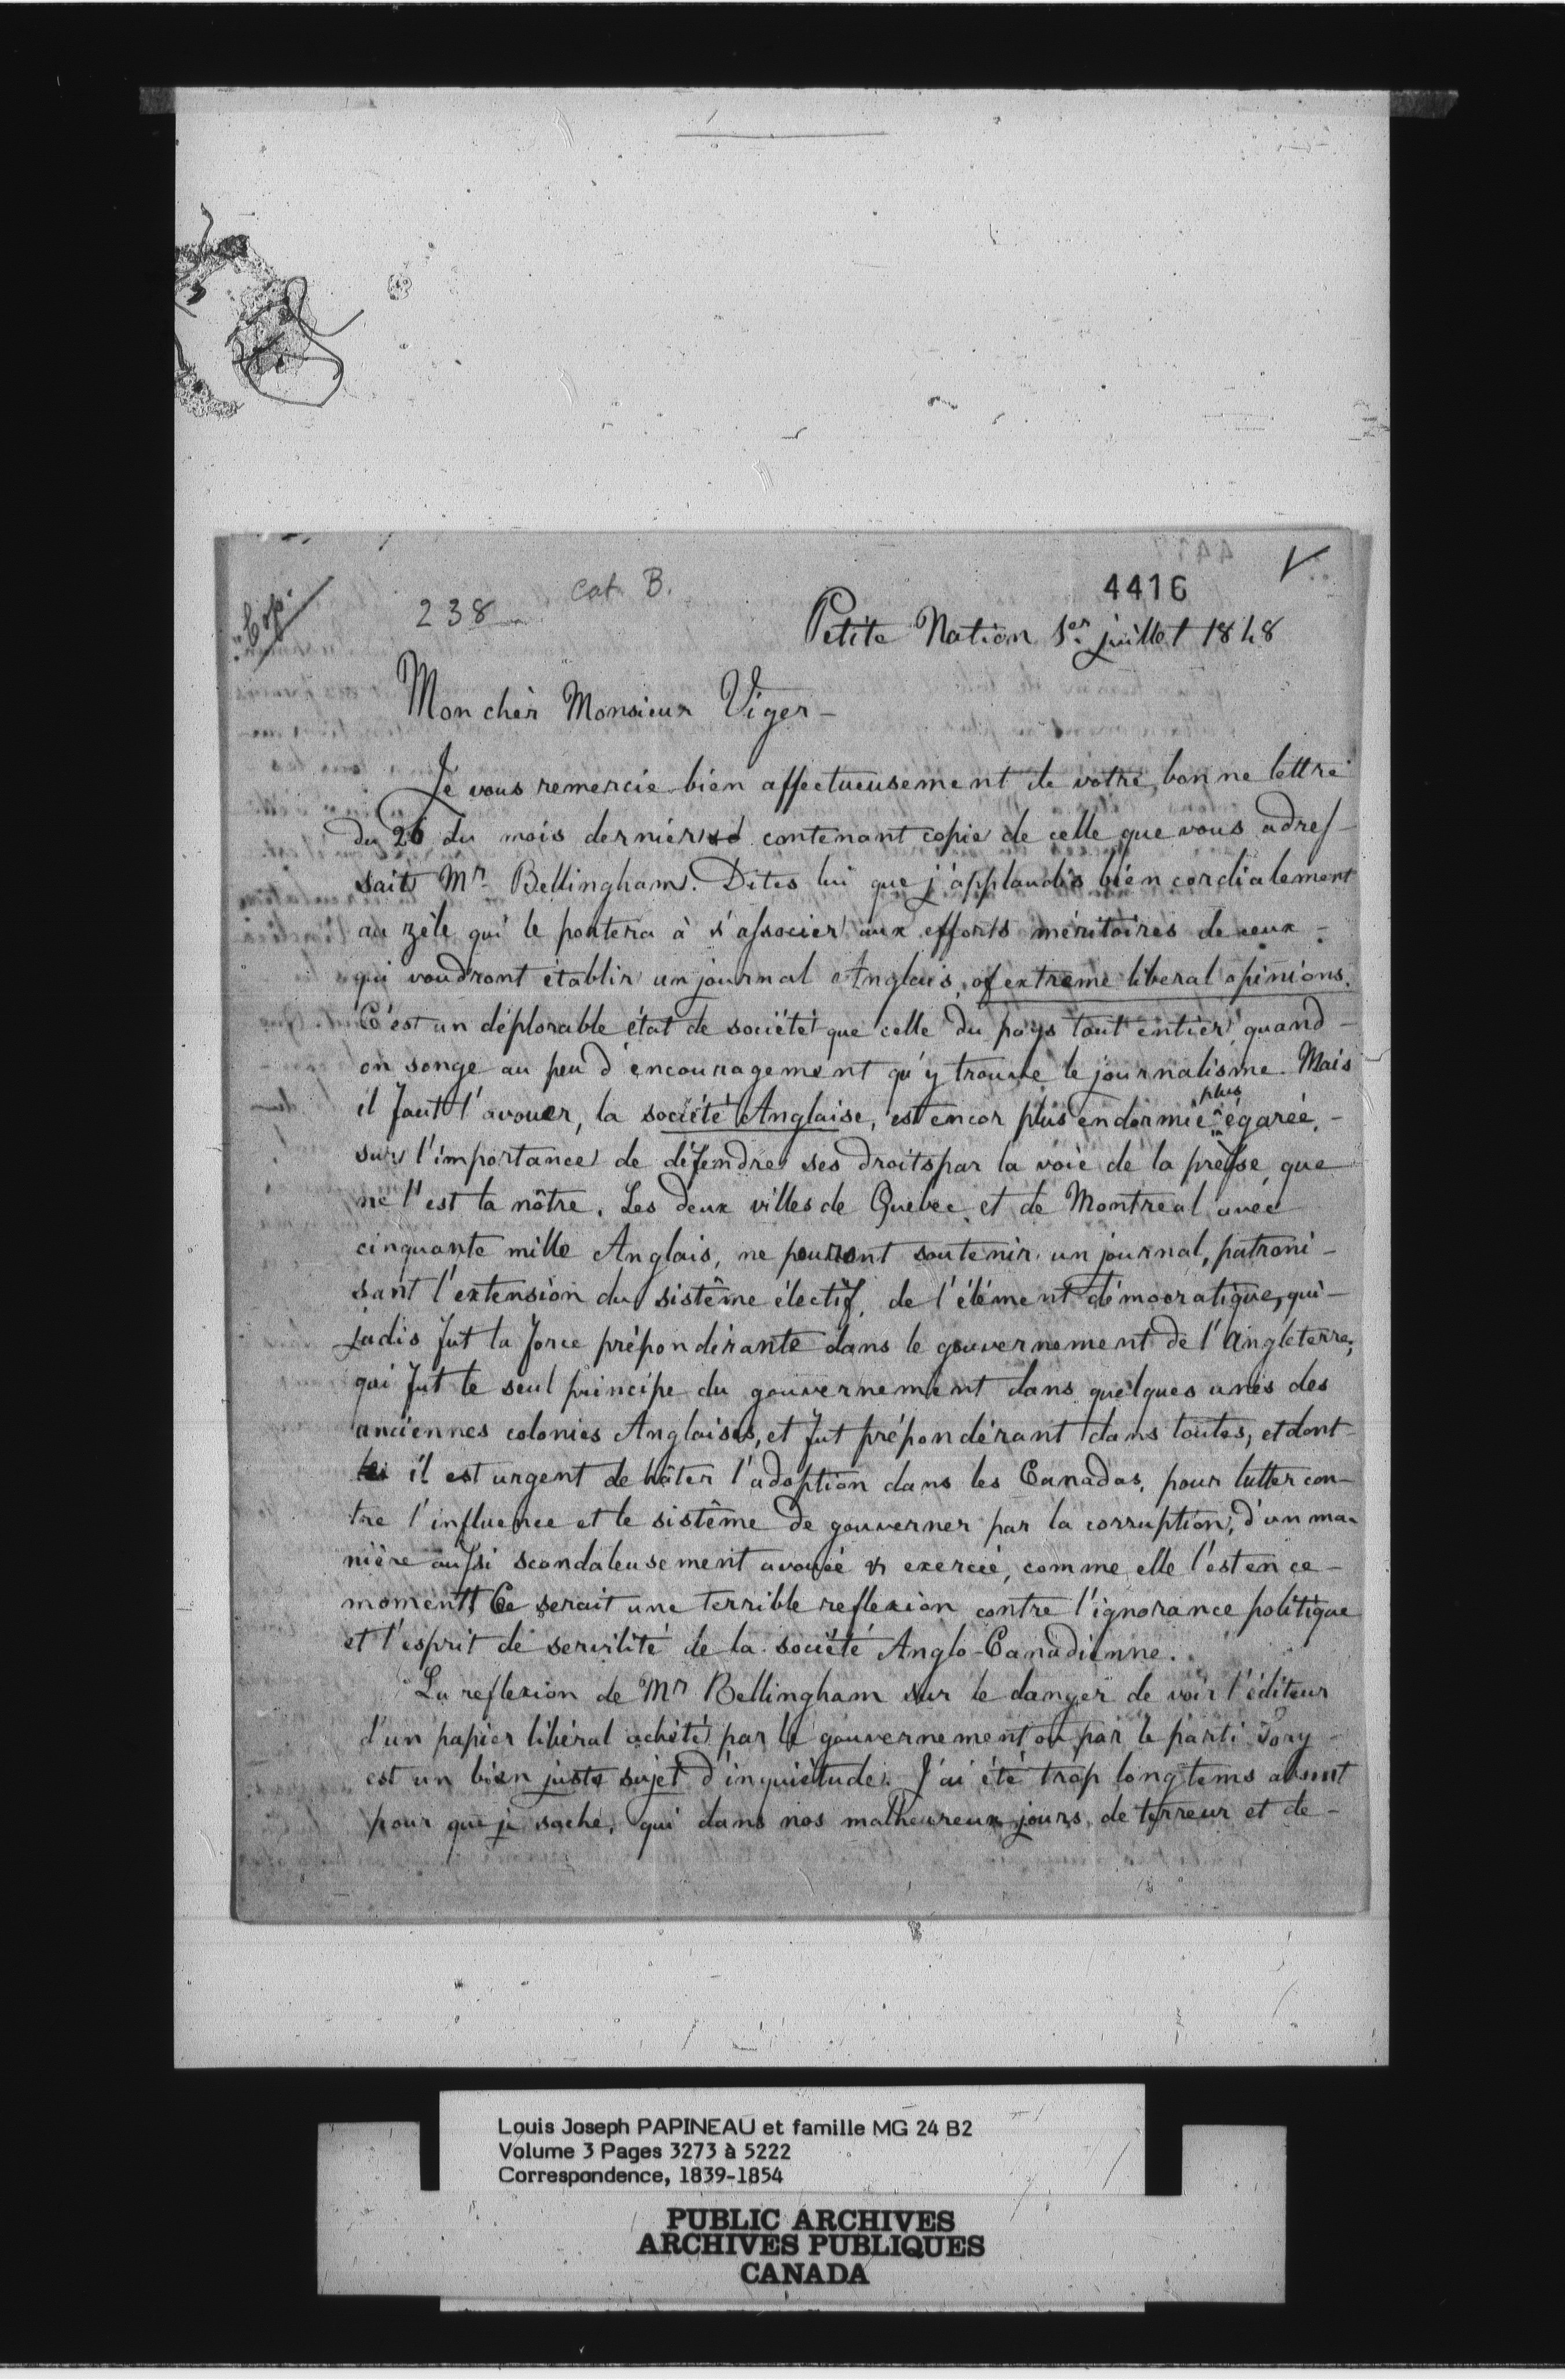 4416
Cop.
238
cat B.
Petite Nation 1er juillet 1848
Mon cher Monsieur Viger –
Je vous remercie bien affectueusement de votre bonne lettre
du 26 du mois dernier contenant copie de celle que vous adres-
sait Mr. Bellingham. Dites lui que j'applaudis bien cordialement
au zèle qui le portera à s'associer aux efforts méritoires de ceux -
qui voudront établir un journal Anglais, of extreme liberal opinions.
C'est un déplorable état de société que celle du pays tout entier, quand -
on songe au peu d'encouragement qu'y trouve le journalisme. Mais
il faut l'avouer, la société Anglaise, est encor plus endormie plus égarée, -
sur l'importance de défendre ses droits par la voie de la presse, que
ne l'est la nôtre. Les deux villes de Quebec et de Montreal avec
cinquante mille Anglais, ne pourront soutenir un journal, patroni-
sant l'extension du sistême électif, de l'élément démocratique, qui -
jadis fut la force prépondérante dans le gouvernement de l'Angleterre;
qui fut le seul principe du gouvernement dans quelques unes des
anciennes colonies Anglaises, et fut prépondérant dans toutes, et dont -
il est urgent de hâter l'adoption dans les Canadas, pour lutter con-
tre l'influence et le sistême de gouverner par la corruption, d'un ma-
nière aussi scandaleusement avouée & exercée, comme elle l'est en ce -
moment! Ce serait une terrible reflexion contre l'ignorance politique
et l'esprit de servilité de la société Anglo-Canadienne.
La reflexion de Mr Bellingham sur le danger de voir l'éditeur
d'un papier libéral acheté par le gouvernement ou par le parti Tory -
est un bien juste sujet d'inquiétude. J'ai été trop longtems absent
pour que je sache, qui dans nos malheureux jours, de terreur et de -
Louis Joseph PAPINEAU et famille MG 24 B2
Volume 3 Pages 3273 à 5222
Correspondence, 1839-1854
PUBLIC ARCHIVES
ARCHIVES PUBLIQUES
CANADA